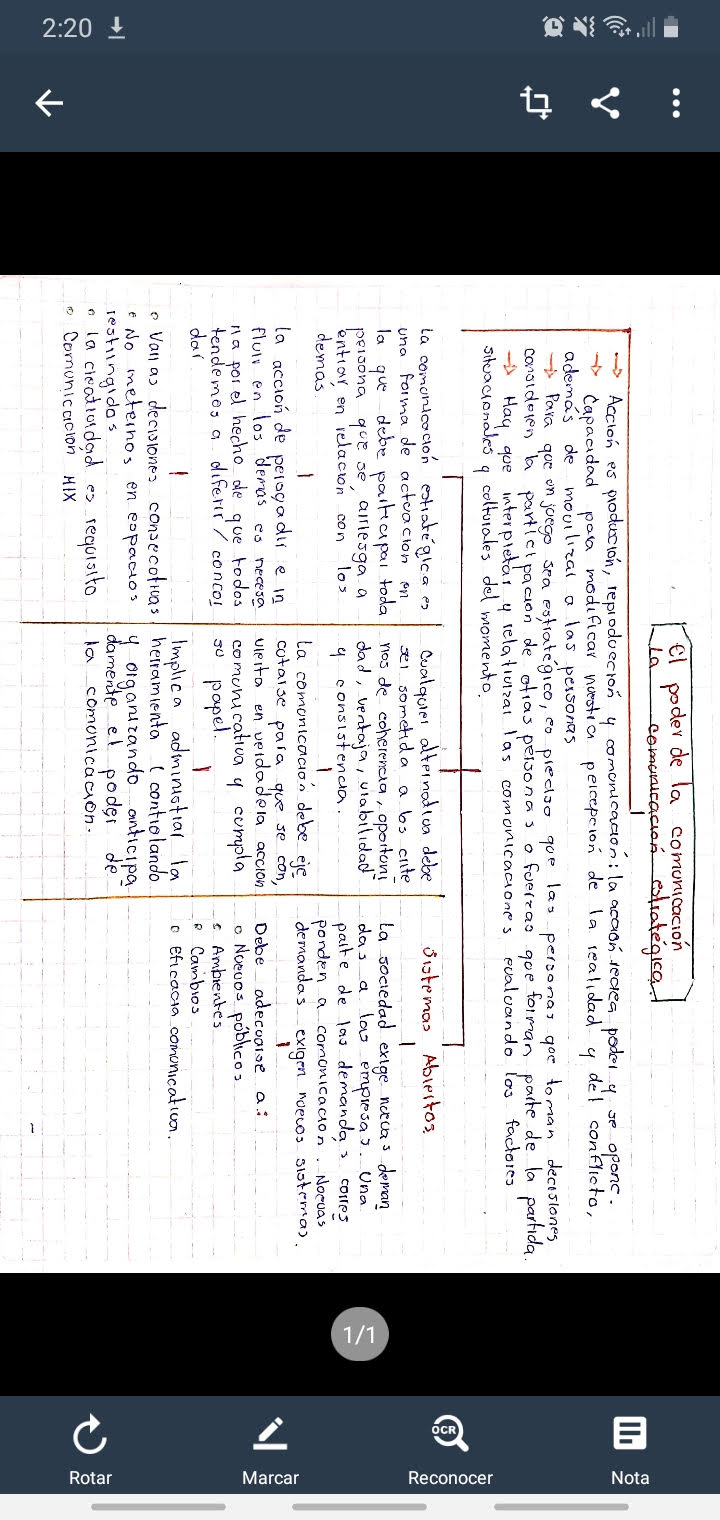 2:20
El poder de la comunicación
La comunicación estratégica.
→ Acción es producción, reproducción y comunicación: la acción redea poder y se opone.
→ Capacidad para modificar nuestra percepción de la realidad y del conflicto,
además de movilizar a las personas
→ Para que un juego sea estratégico, es preciso que las personas que toman decisiones
consideren la participación de otras personas o fuerzas que forman parte de la partida.
→ Hay que interpretar y relativizar las comunicaciones evaluando los factores
situacionales y culturales del momento.
La comunicación estratégica es
una forma de actuación en
la que debe participar toda
persona que se arriesga a
entrar en relación con los
demás.
la acción de persuadir e in
fluir en los demás es necesa
ria por el hecho de que todos
tendemos a diferir / concor
dar
o Varias decisiones consecutivas
o No meternos en espacios
restringidos
o la creatividad es requisito
o Comunicación MIX
Cualquier alternativa debe
ser sometida a los crite
rios de coherencia, oportuni
dad, ventaja, viabilidad
y consistencia.
La comunicación debe eje
cutarse para que se con,
vierta en verdadera acción
comunicativa y cumpla
su papel
Implica administrar la
herramienta (controlando
y organizando anticipa
damente el poder de
la comunicación.
Sistemas Abiertos
La sociedad exige nuevas deman
das a las empresas. Una
parte de las demandas corres
ponden a comunicación. Nuevas
demandas exigen nuevos sistemas.
Debe adecuarse a:
o Nuevos públicos
o Ambientes
o Cambios
o Eficacia comunicativa.
1/1
OCR
Rotar
Marcar
Reconocer
Nota